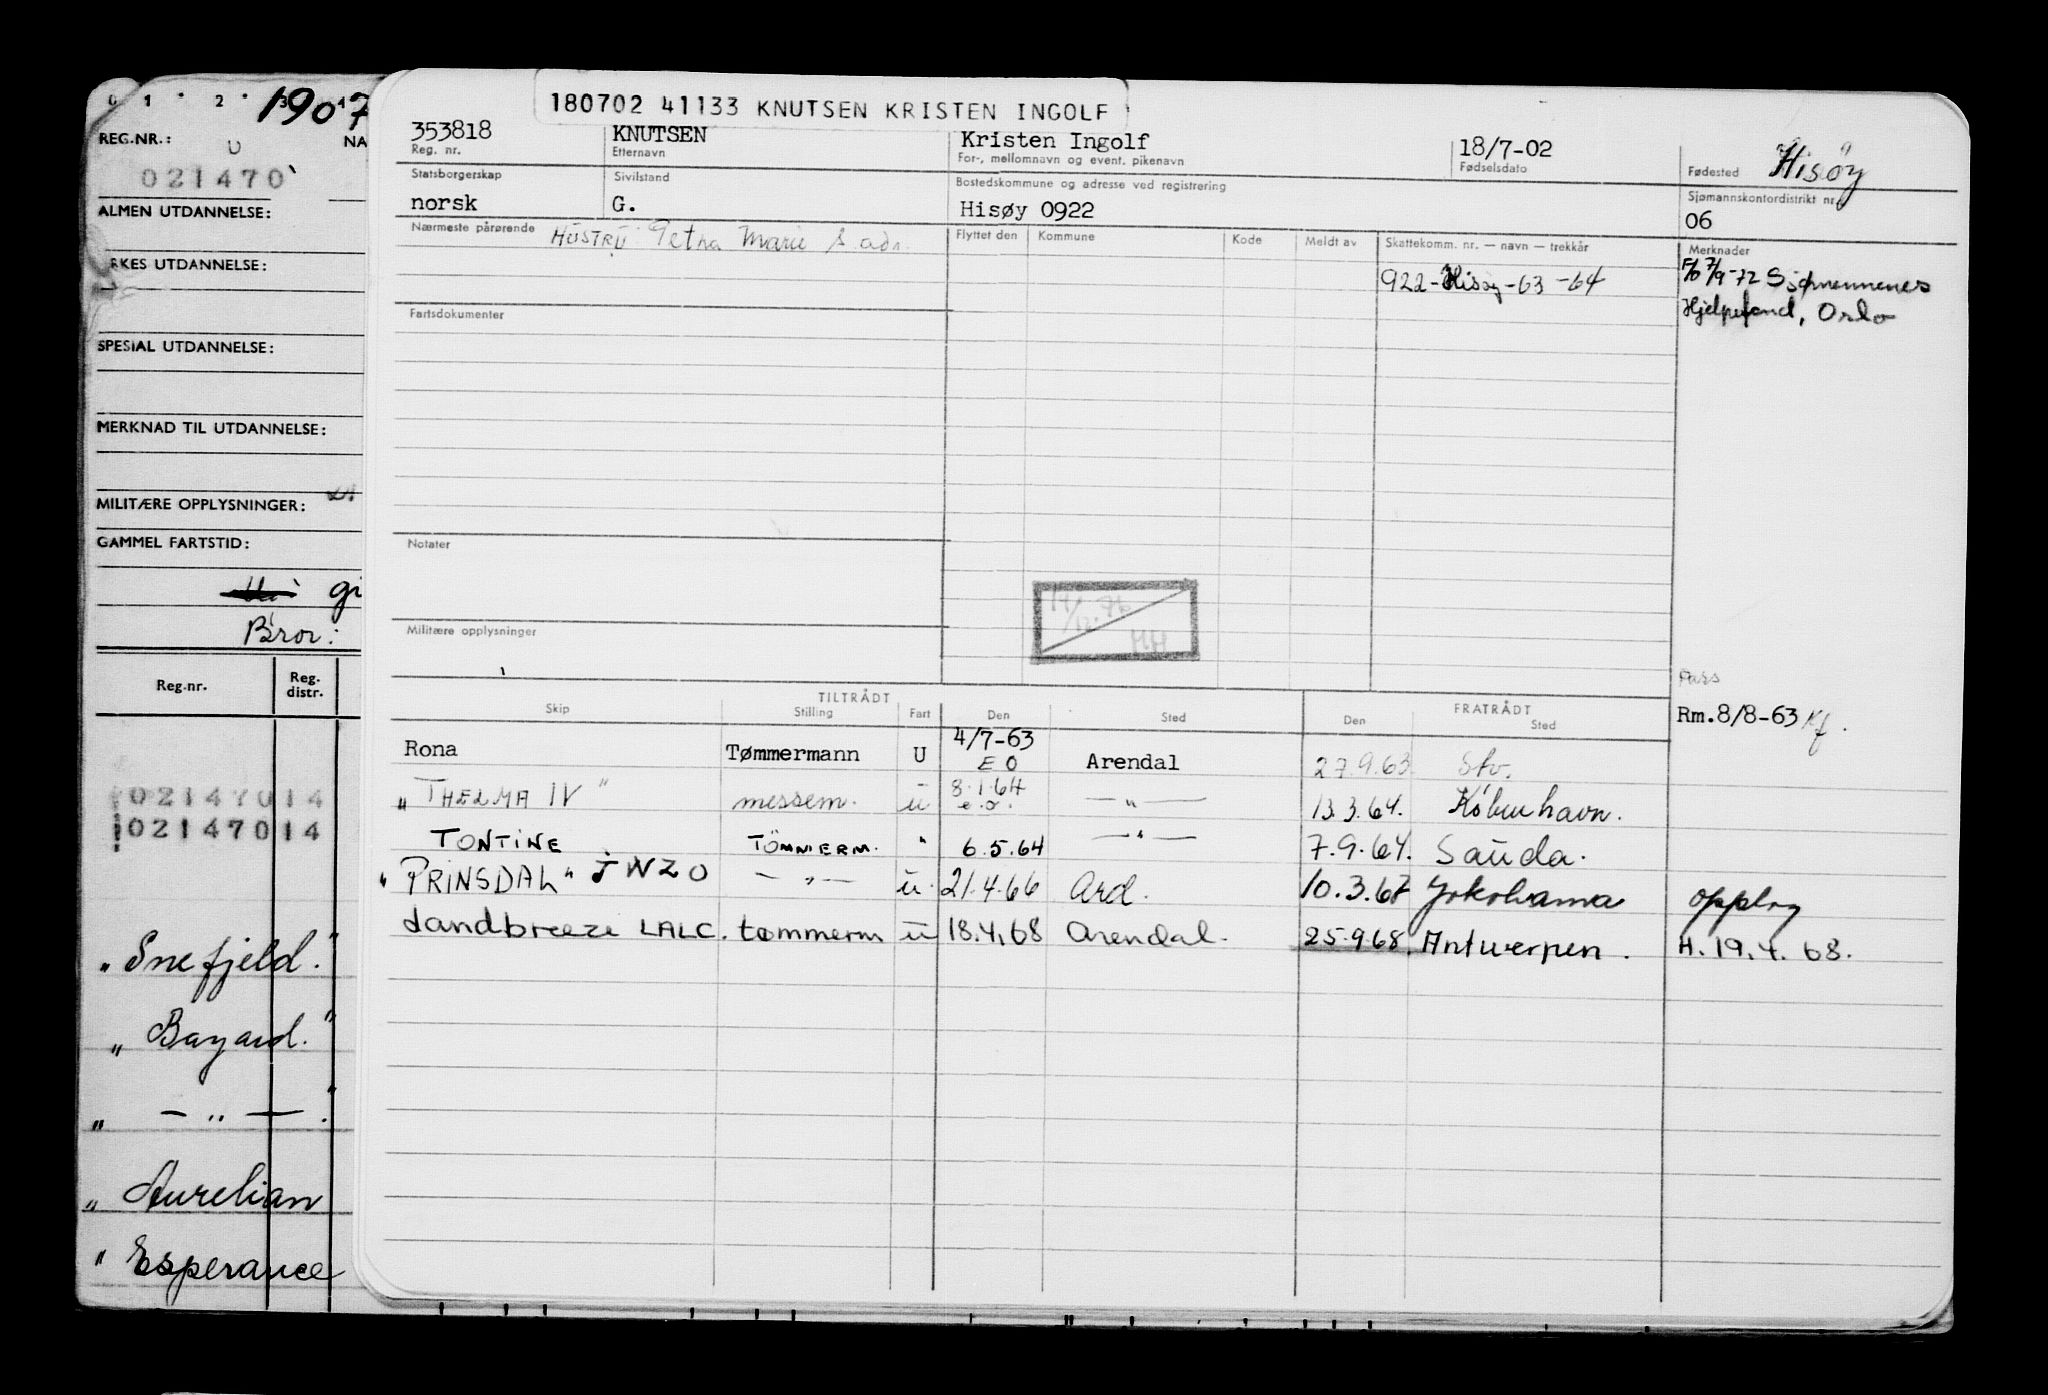 0 1 2 3 4
1907
REG.NR.: U NA
021470
ALMEN UTDANNELSE:
RKES UTDANNELSE:
SPESIAL UTDANNELSE:
MERKNAD TIL UTDANNELSE:
MILITÆRE OPPLYSNINGER:
GAMMEL FARTSTID:
gi
Bror:
Reg.nr. Reg. distr.
02147014
02147014
„Snefjeld."
„Bayard."
„ — „ — "
„Aurelian
"Esperance
180702 41133 KNUTSEN KRISTEN INGOLF
353818 KNUTSEN Kristen Ingolf 18/7-02 Hisøy
Reg. nr. Etternavn For-, mellomnavn og event. pikenavn Fødselsdato Fødested
Statsborgerskap Sivilstand Bostedskommune og adresse ved registrering Sjømannskontordistrikt nr.
norsk G. Hisøy 0922 06
Nærmeste pårørende HUSTRU Petra Marie S. adr. Flyttet den Kommune Kode Meldt av Skattekomm. nr. — navn — trekkår Merknader
922-Hisøy-63-64 F/o 7/9-72 Sjømennenes
Hjelpefond, Oslo
Fartsdokumenter
Notater
Militære opplysninger
Pass
TILTRÅDT FRATRÅDT
Skip Stilling Fart Den Sted Den Sted Rm.8/8-63 Kf.
Rona Tømmermann U 4/7-63 EO Arendal 27.9.63 Stv.
„THELMA IV" messem. u 8.1.64 e.o. — „ — 13.3.64. København.
TONTINE TÖMMERM. " 6.5.64 — " — 7.9.64. Sauda.
"PRINSDAL" JWZO — „ — u. 21.4.66 Ard. 10.3.67 Yokohama opplag
Sandbreeze LALC. tømmerm u 18.4.68 Arendal. 25.9.68. Antwerpen. H.19.4.68.